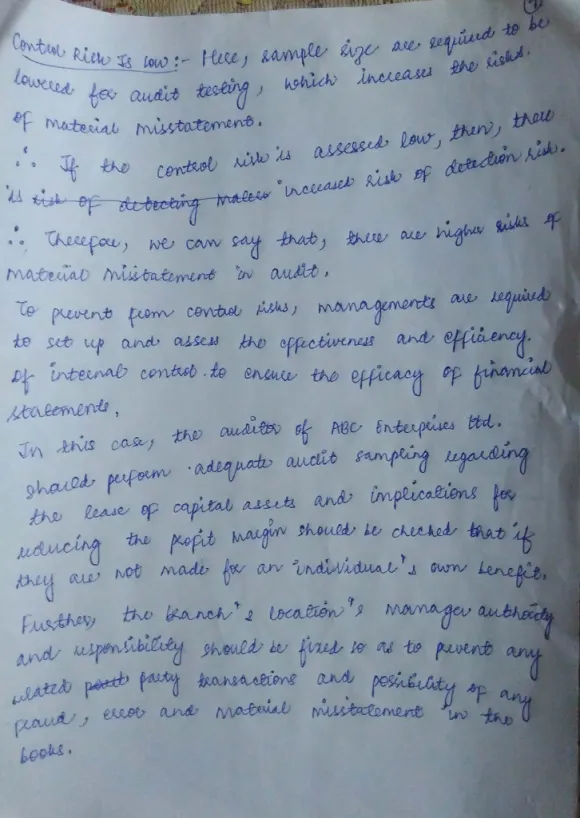 ①
Control Risk Is low :- Here, sample size are required to be
lowered for audit testing, which increases the risks.
of material misstatement.
∴ If the control risk is assessed low, then, there
is risk of detecting increased risk of detection risk.
∴ Therefore, we can say that, there are higher risks of
material misstatement in audit.
To prevent from control risks, managements are required
to set up and assess the effectiveness and efficiency.
of internal control. to ensure the efficacy of financial
statements.
In this case, the auditor of ABC Enterprises Ltd.
should perform adequate audit sampling regarding
the lease of capital assets and implications for
reducing the profit margin should be checked that if
they are not made for an individual's own benefit.
Further, the branch's location's manager authority
and responsibility should be fixed so as to prevent any
related party transactions and possibility of any
fraud, error and material misstatement in the
books.